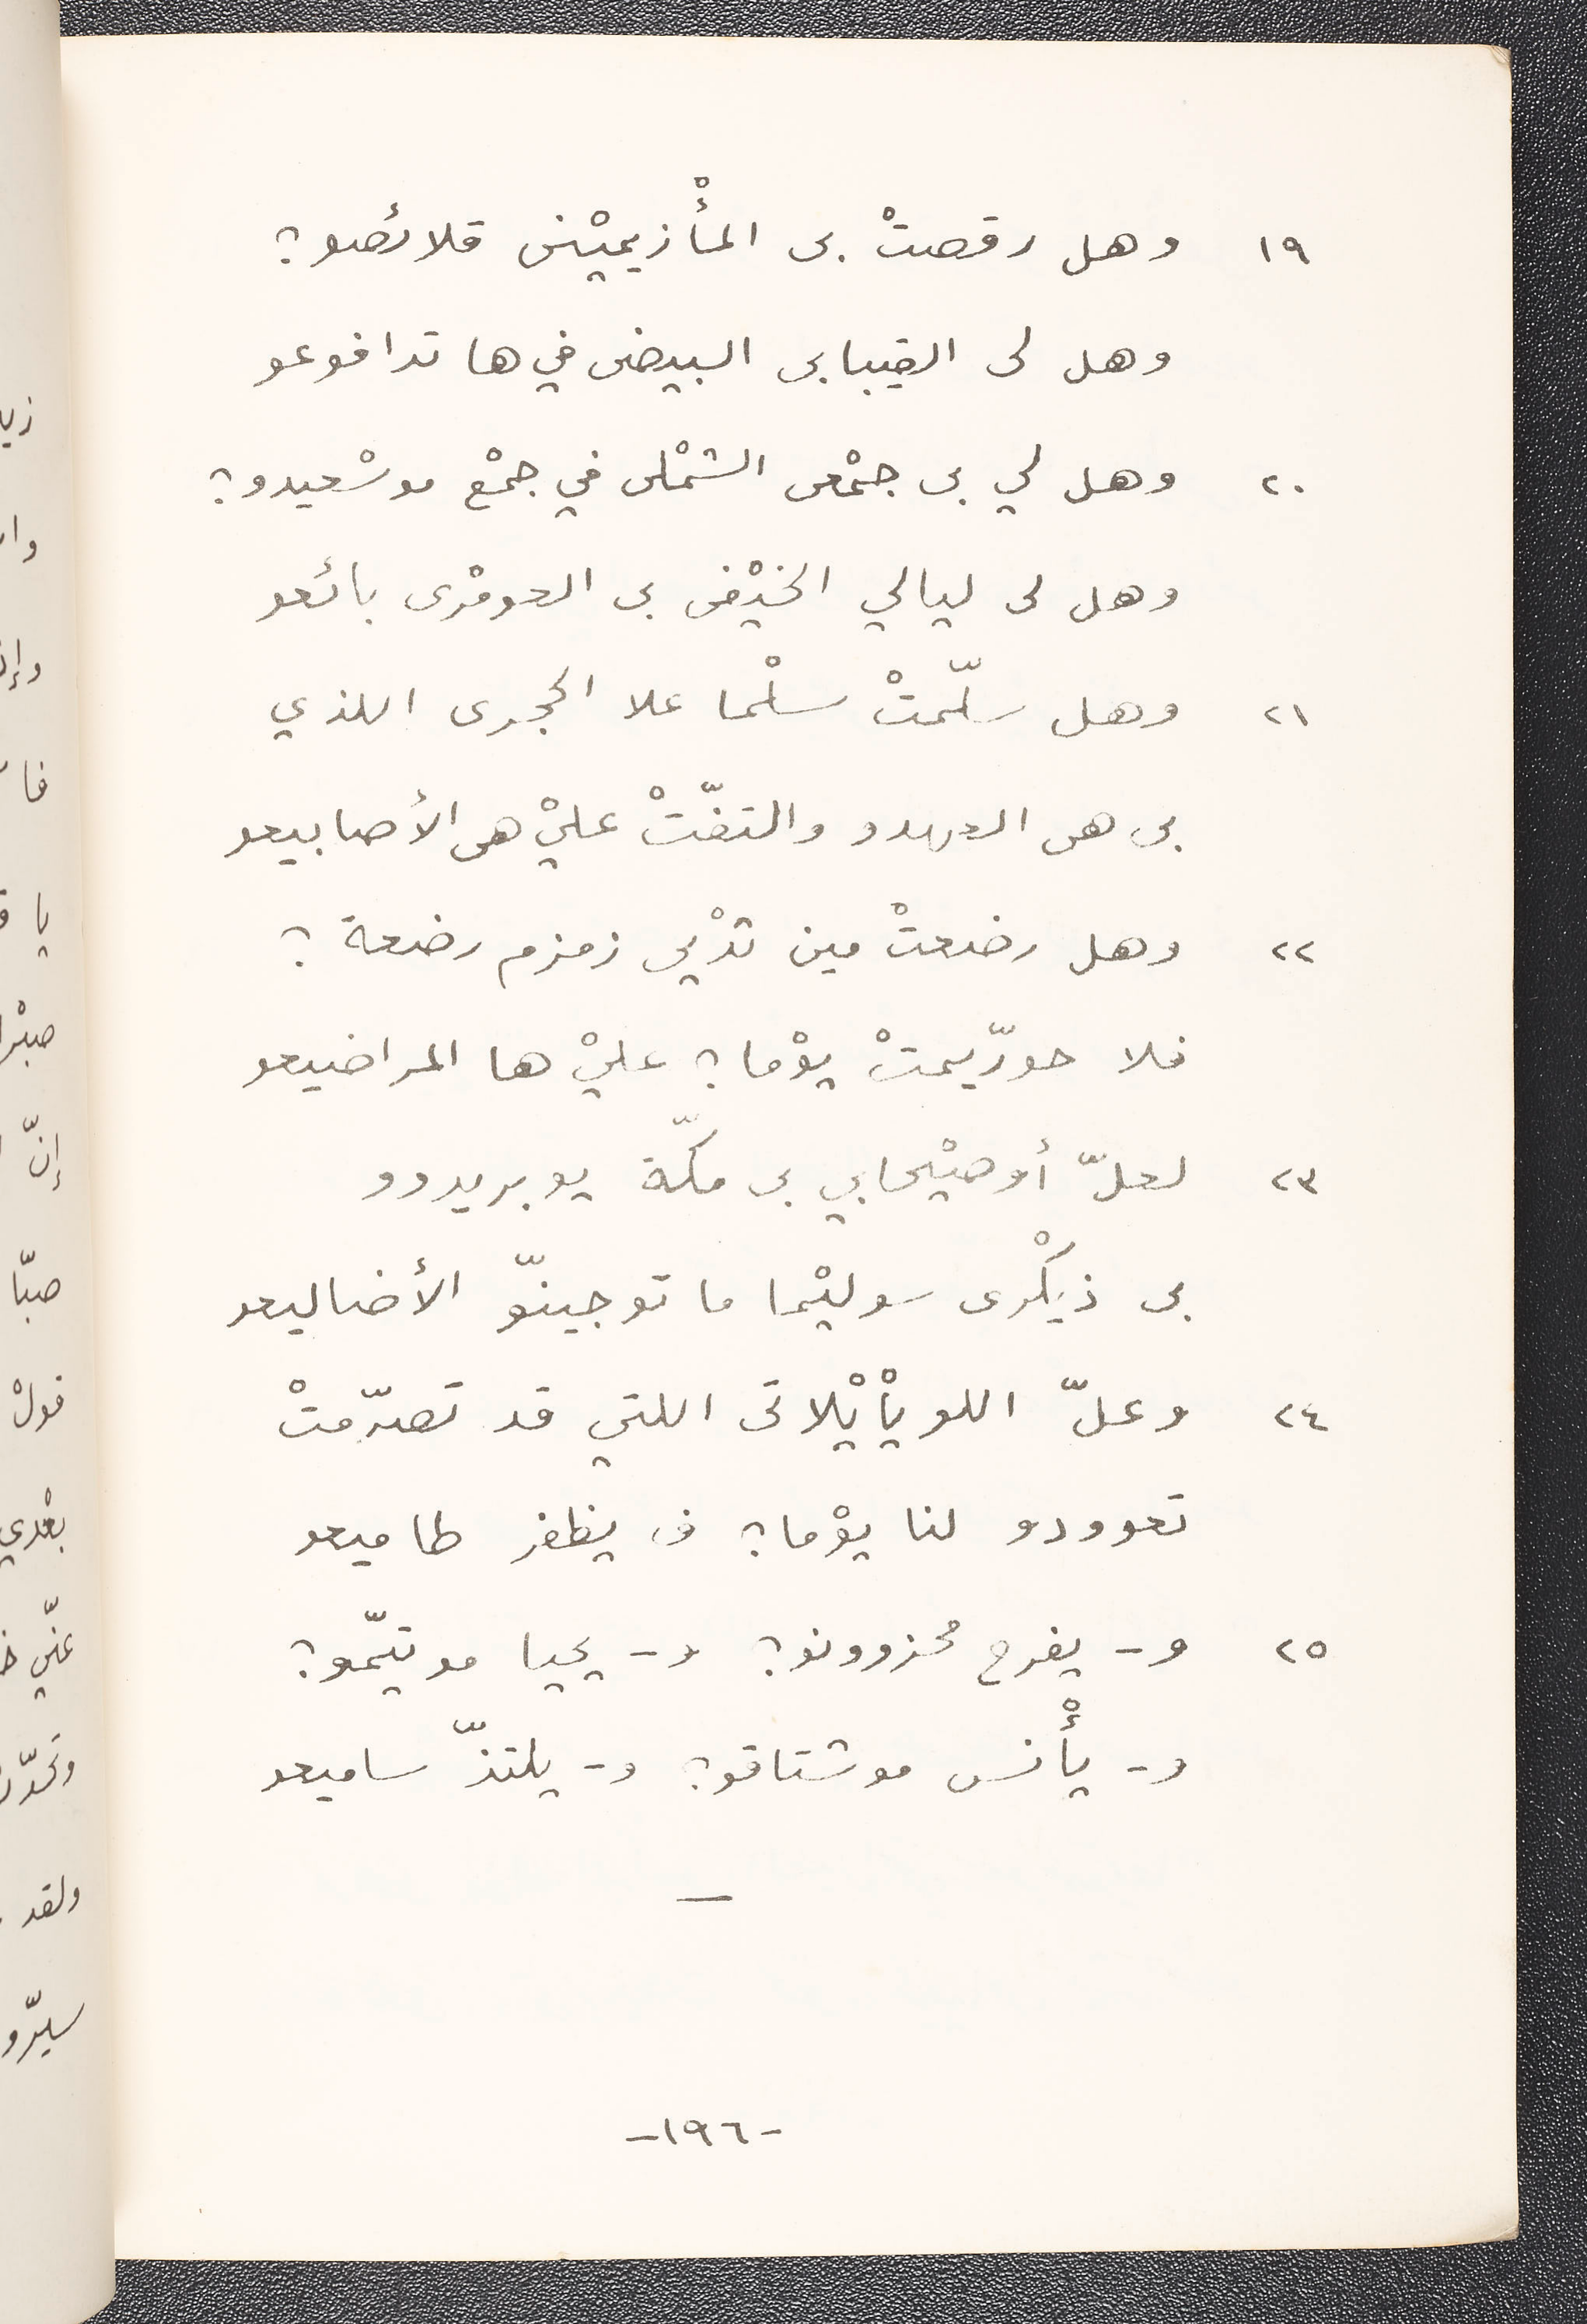 ١٩ وهل رقصتْ بى المأْزيميْنى قلائصو؟
وهل لى القيبابى البيضى في ها تدافوعو
٢٠ وهل لي بى جمْعى الشمْلى في جمْع موسْعيدو؟
وهل لى ليالي الخيْفى بى العومْرى بائعو
٢١ وهل سلّمتْ سلْما علا الحجرى اللذي
بى هى العهدو والتفّتْ عليْ هى الأصابيعو
٢٢ وهل رضعتْ مين ثدْيى زمزم رضعة ؟
فلا حورّيمتْ يوْما؟ عليْ ها المراضيعو
٢٣ لعلّ أوصيْحابي بى مكّة يوبريدوو
بى ذيكْرى سوليْما ما توجينّو الأضاليعو
٢٤ وعلّ اللويْأيْلاتى اللتي قد تصرّمتْ
تعوودو لنا يوْما؟ فـ يظفر طاميعو
٢٥ و- يفرح محزوونو؟ و- يحيا موتيّمو؟
و- يأْنس موشتاقو؟ و- يلتذّ ساميعو
-١٩٦-